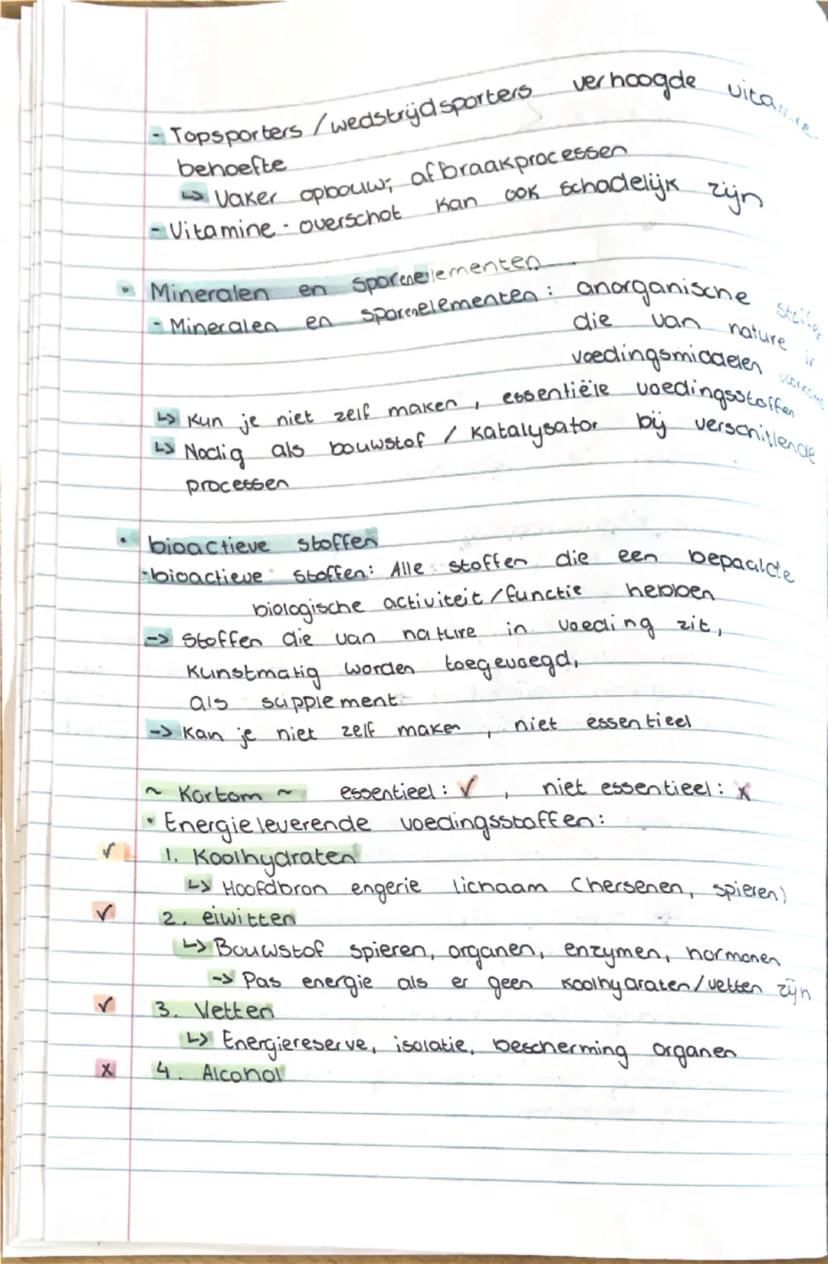 - Topsporters / wedstrijdsporters verhoogde vitamine
behoefte
↳ Vaker opbouw; afbraakprocessen
- Vitamine - overschot kan ook schadelijk zijn
• Mineralen en sporenelementen
- Mineralen en sporenelementen: anorganische stoffen
die van nature in
voedingsmiddelen
↳ Kun je niet zelf maken, essentiële voedingsstoffen
↳ Nodig als bouwstof / katalysator bij verschillende
processen
• bioactieve stoffen
- bioactieve stoffen: Alle stoffen die een bepaalde
biologische activiteit/functie hebben
-> Stoffen die van nature in voeding zit,
kunstmatig worden toegevoegd,
als supplement
-> Kan je niet zelf maken, niet essentieel
~ Kortom ~ essentieel: ✓, niet essentieel: x
• Energieleverende voedingsstoffen:
✓ 1. Koolhydraten
↳ Hoofdbron engerie lichaam (hersenen, spieren)
✓ 2. eiwitten
↳ Bouwstof spieren, organen, enzymen, hormonen
-> Pas energie als er geen koolhydraten/vetten zijn
✓ 3. Vetten
↳ Energiereserve, isolatie, bescherming organen
x 4. Alcohol